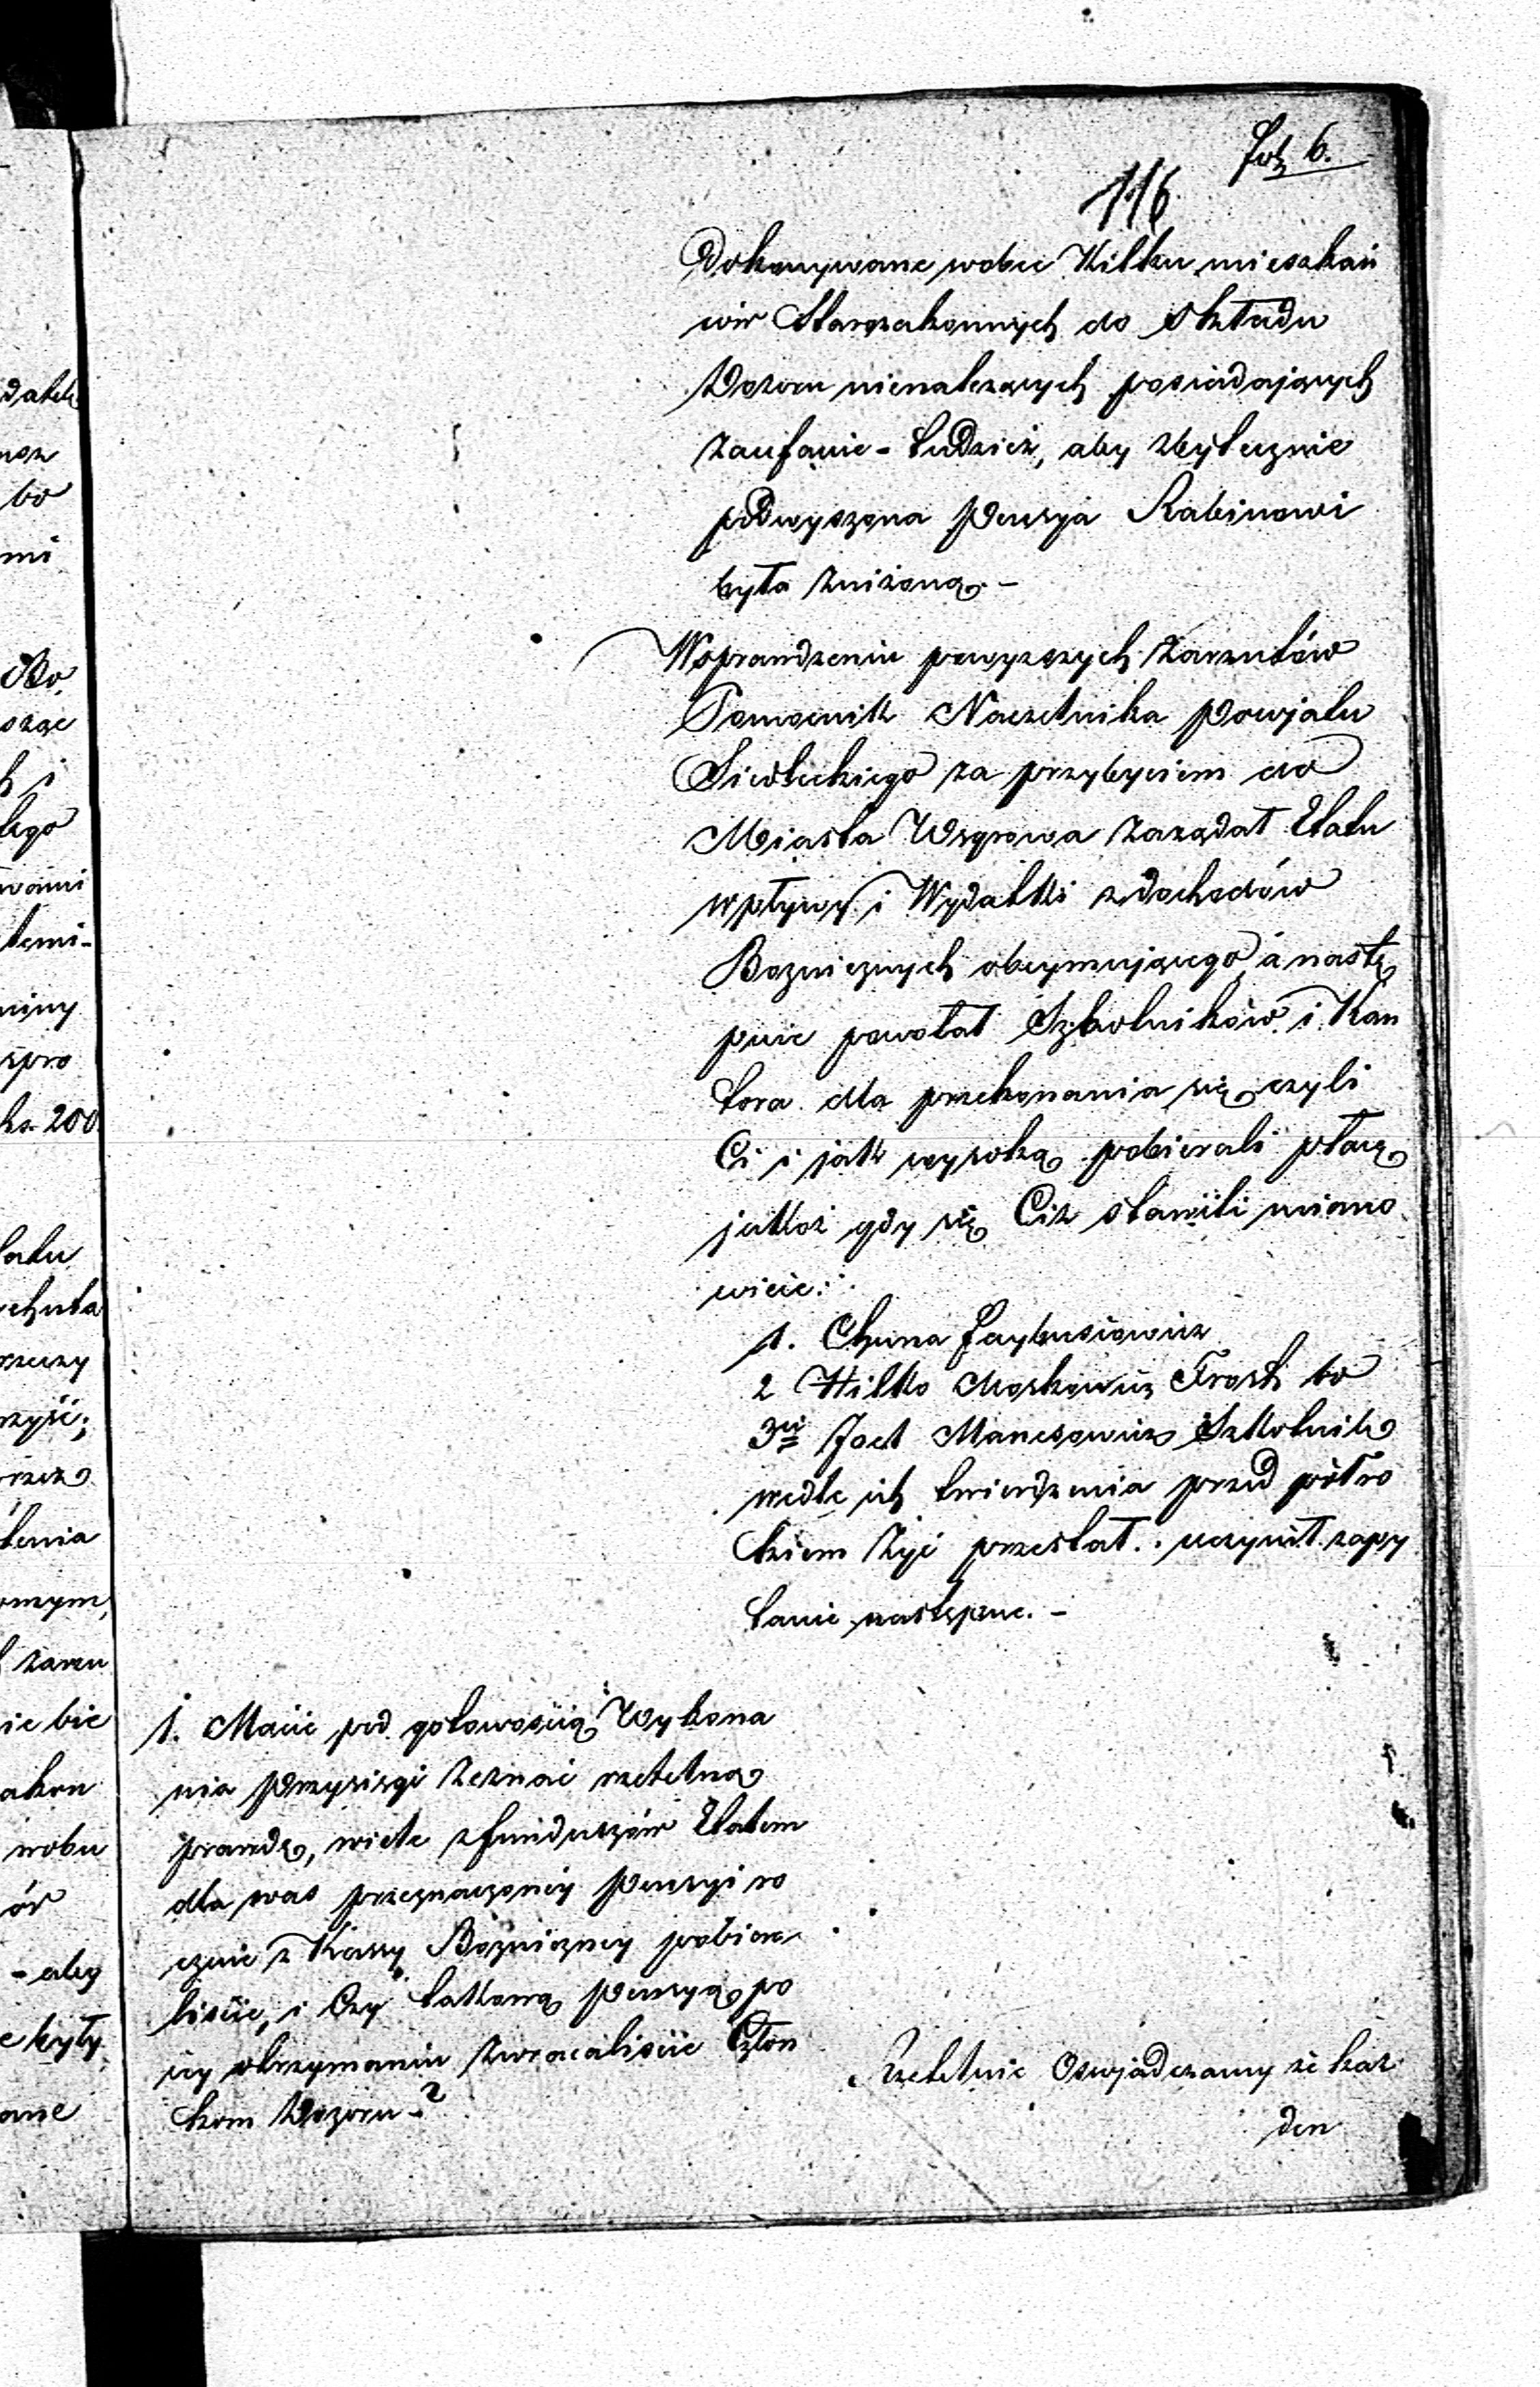 Fol. 6.
116
Dokonywane wobec Kilku mieszkań
ców Starozakonnych do Składu
Dozoru nienależących posiadających
zaufanie – tudzież, aby zbytecznie
podwyższona Pensya Rabinowi
była zniżoną. –
W sprawdzeniu powyższych zarzutów
Pomocnik Naczelnika Powjatu
Siedleckiego za przybyciem do
Miasta Węgrowa zażądał Etatu
wpływy i Wydatki z dochodów
Bożnicznych obeymującego, a nastę
pnie powołał Szkolników i Kan
tora dla przekonania się czyli
Ci i jak wysoką pobierali płacę
jakoż gdy się Ciż stawili miano
wicie:
1. Chuna Leybusiowicz
2 Hilko Moskowicz Frosh bo
3ci Joel Manesowicz Szkolnik
wedle ich twierdzenia przed półro
kiem żyć przestał. uczynił zapy
tanie następne. –
1. Macie pod gotowością Wykona
nia Przysięgi zeznać rzetelną
prawdę, wiele z funduszów Etatem
dla was przeznaczoney Pensyi ro
cznie z Kassy Bożniczney pobiera
liście, i Czy takową Pensyą po
jey otrzymaniu zwracaliście Człon
kom Dozoru –?
Rzetelnie Oswjadczamy że każ
den
datek
bo
mi
h i
tego
wami
temi–
miny
spro
200
tatu
rzeczy
tenia
zarzu
nie bie
akon
wobu
ór
– aby
były
ane